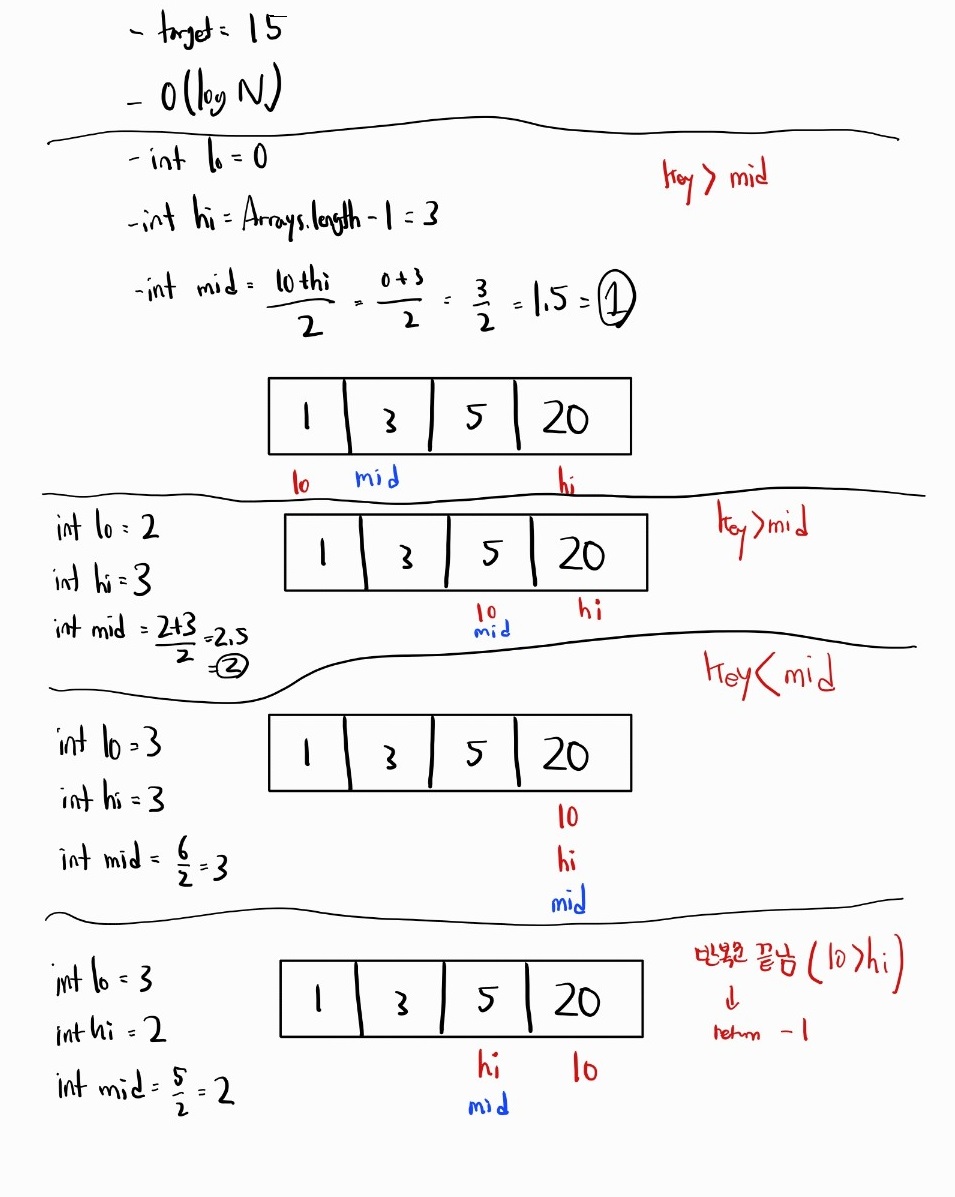 - target = 15
- O(log N)
- int lo = 0
key > mid
- int hi = Arrays.length - 1 = 3
- int mid = lo+hi/2 = 0+3/2 = 3/2 = 1.5 = 1
1 3 5 20
lo mid hi
key > mid
int lo = 2
int hi = 3
int mid = 2+3/2 = 2.5
= 2
1 3 5 20
lo hi
mid
key < mid
int lo = 3
int hi = 3
int mid = 6/2 = 3
1 3 5 20
lo
hi
mid
반복문 끝남 (lo > hi)
↓
return -1
int lo = 3
int hi = 2
int mid = 5/2 = 2
1 3 5 20
hi lo
mid